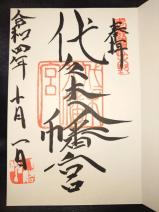 奉拝
代々木八幡宮
令和四年十月一日